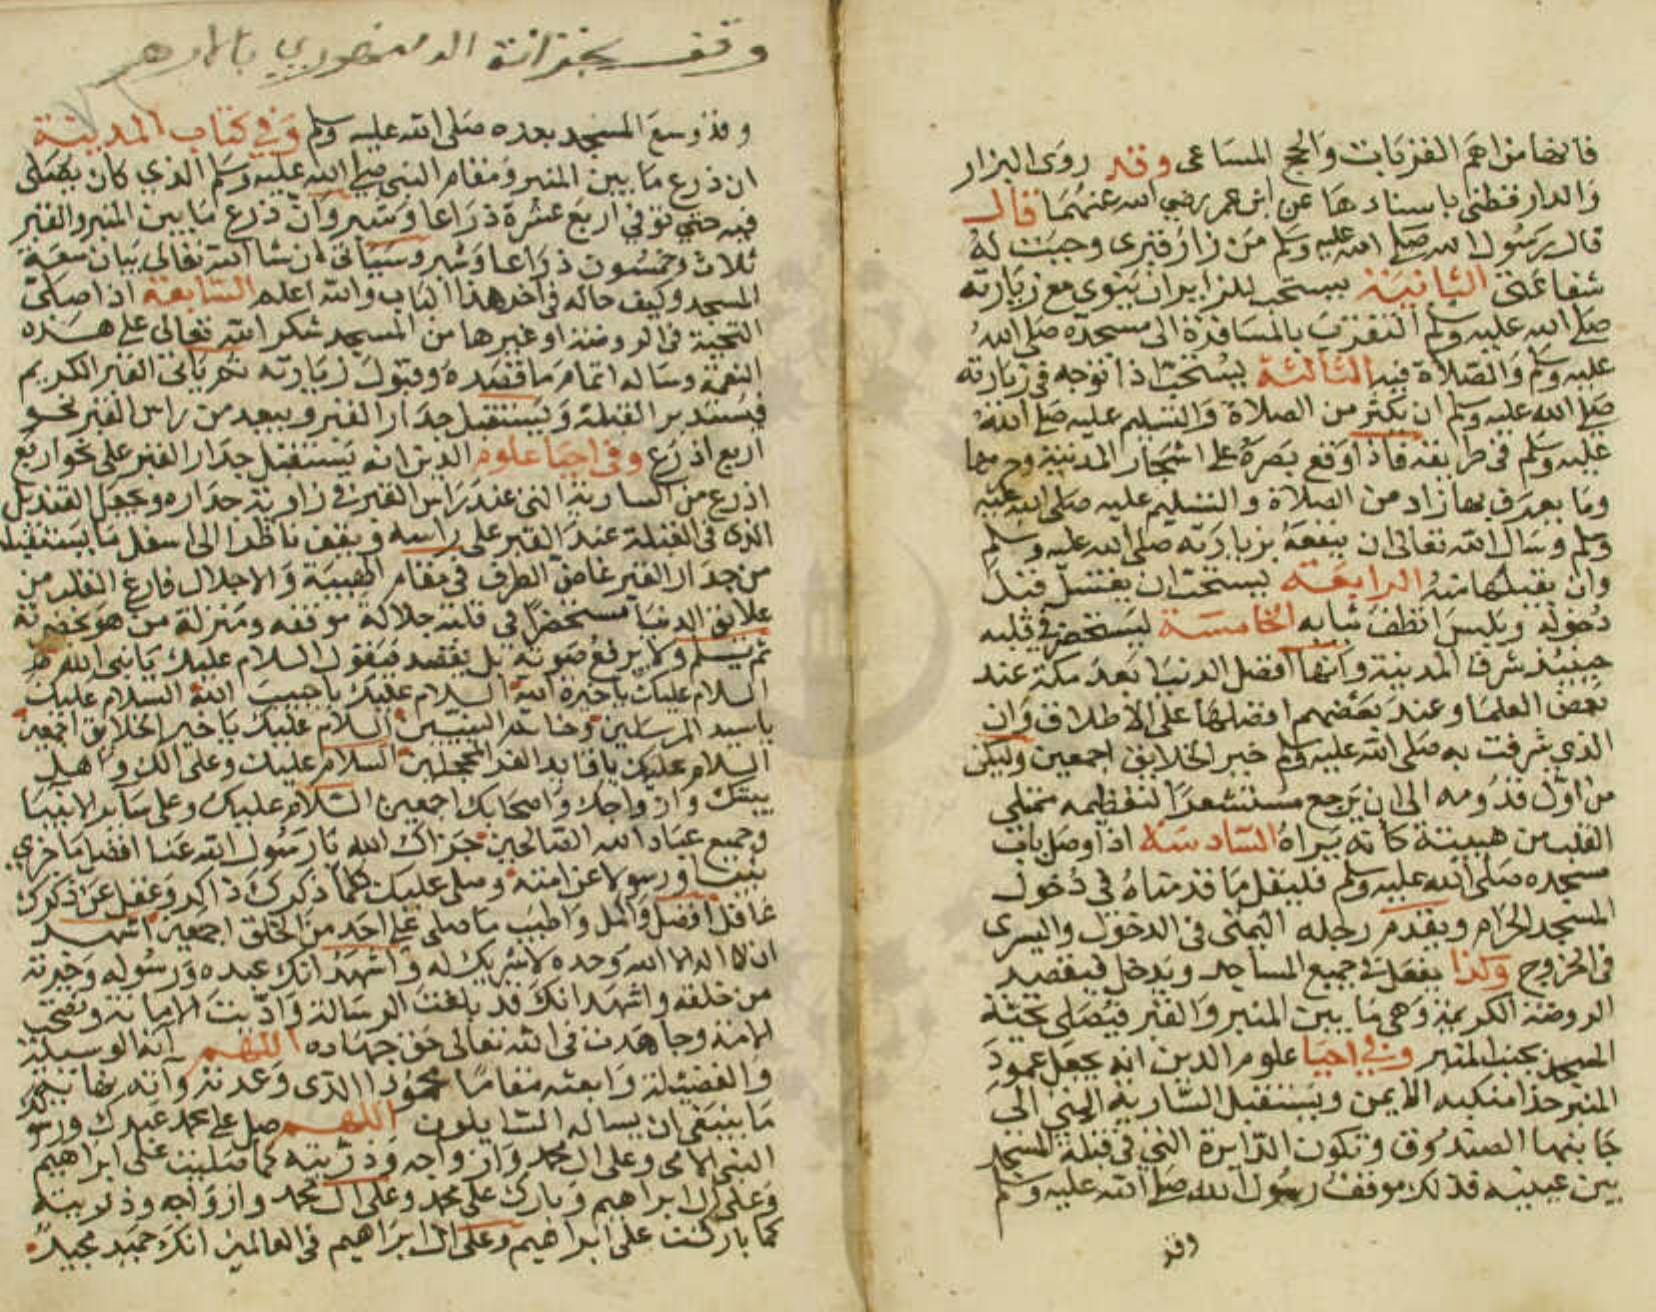 فانها من اهم القربات وانجح المساعى وقد روى البزار
والدارقطنى باسنادهما عن ابن عمر رضي الله عنهما قال
قال رسول الله صلى الله عليه وسلم من زار قبرى وجبت له
شفاعتى الثانية يستحب للزاير ان ينوي مع زيارته
صلى الله عليه وسلم التقرب بالمسافرة الى مسجده صلى الله
عليه وسلم والصلاة فيه الثالثة يستحب اذا توجه في زيارته
صلى الله عليه وسلم ان يكثر من الصلاة والتسليم عليه صلى الله
عليه وسلم في طريقه فاذا وقع بصره على اشجار المدينة وحرمها
وما يعرف بها زاد من الصلاة والتسليم عليه صلى الله عليه
وسلم وسال الله تعالى ان ينفعه بزيارته صلى الله عليه وسلم
وان يقبلها منه الرابعة يستحب ان يغتسل قبل
دخوله ويلبس انظف ثيابه الخامسة ليستحضر في قلبه
حينيذ شرف المدينة وانها افضل الدنيا بعد مكة عند
بعض العلما وعند بعضهم افضلها على الاطلاق وان
الذي شرفت به صلى الله عليه وسلم خير الخلايق اجمعين وليكن
من اول قدومه الى ان يرجع مستشعرا لتعظيمه ممتلى
القلب من هيبته كانه يراه السادسة اذا وصل باب
مسجده صلى الله عليه وسلم فليقل ما قدمناه في دخول
المسجد الحرام ويقدم رجله اليمنى فى الدخول واليسرى
فى الخروج وكذا يفعل في جميع المساجد ويدخل فيقصد
الروضة الكريمة وهى ما بين المنبر والقبر فيصلى تحية
المسجد بجنب المنبر وفي احيا علوم الدين انه يجعل عمود
المنبر حذا منكبه الايمن ويستقبل السارية التي الى
جانبها الصندوق وتكون الدايرة التي في قبلة المسجد
بين عينيه فذلك موقف رسول الله صلى الله عليه وسلم
وقد
وقف بخزانة الدمنهوري بالازهر
وقد وسع المسجد بعده صلى الله عليه وسلم وفي كتاب المدينة
ان ذرع ما بين المنبر ومقام النبي صلى الله عليه وسلم الذي كان يصلى
فيه حتي توفي اربع عشرة ذراعا وشبر وان ذرع ما بين المنبر والقبر
ثلاث وخمسون ذراعا وشبر وسياتى ان شا الله تعالى بيان سعة
المسجد وكيف حاله في اخر هذا الباب والله اعلم السابعة اذا صلى
التحية في الروضة او غيرها من المسجد شكر الله تعالى على هذه
النعمة وساله اتمام ما قصده وقبول زيارته ثم ياتى القبر الكريم
فيستدبر القبلة ويستقبل جدار القبر ويبعد من راس القبر نحو
اربع اذرع وفى احيا علوم الدين انه يستقبل جدار القبر على نحو اربع
اذرع من السارية التى عند راس القبر في زاوية جداره ويجعل القنديل
الذى فى القبلة عند القبر على راسه ويقف ناظرا الى اسفل ما يستقبله
من جدار القبر غاض الطرف في مقام الهيبة والاجلال فارغ القلب من
علايق الدنيا مستحضرا في قلبه جلالة موقفه ومنزلة من هو بحضرته
ثم يسلم ولا يرفع صوته بل يقصد فيقول السلام عليك يا نبي الله
السلام عليك يا خيرة الله السلام عليك يا حبيب الله السلام عليك
يا سيد المرسلين وخاتم النبيين السلام عليك يا خير الخلايق اجمعين
السلام عليك يا قايد الغر المحجلين السلام عليك وعلى الك واهل
بيتك وازواجك واصحابك اجمعين السلام عليك وعلى سائر الانبيا
وجميع عباد الله الصالحين جزاك الله يا رسول الله عنا افضل ما جزي
نبيا ورسولا عن امته وصلى عليك كلما ذكرك ذاكر وغفل عن ذكرك
غافل افضل واكمل واطيب ما صلى على احد من الخلق اجمعين اشهد
ان لا اله الا الله وحده لا شريك له واشهد انك عبده ورسوله وخيرته
من خلقه واشهد انك قد بلغت الرسالة واديت الامانة ونصحت
الامة وجاهدت فى الله تعالى حق جهاده اللهم آته الوسيلة
والفضيلة وابعثه مقاما محمودا الذى وعدته وآته نهاية
ما ينبغى ان يساله السايلون اللهم صل على محمد عبدك ورسولك
النبي الامى وعلى ال محمد وازواجه وذريته كما صليت على ابراهيم
وعلى ال ابراهيم وبارك على محمد وعلى ال محمد وازواجه وذريته
كما باركت على ابراهيم وعلى ال ابراهيم في العالمين انك حميد مجيد